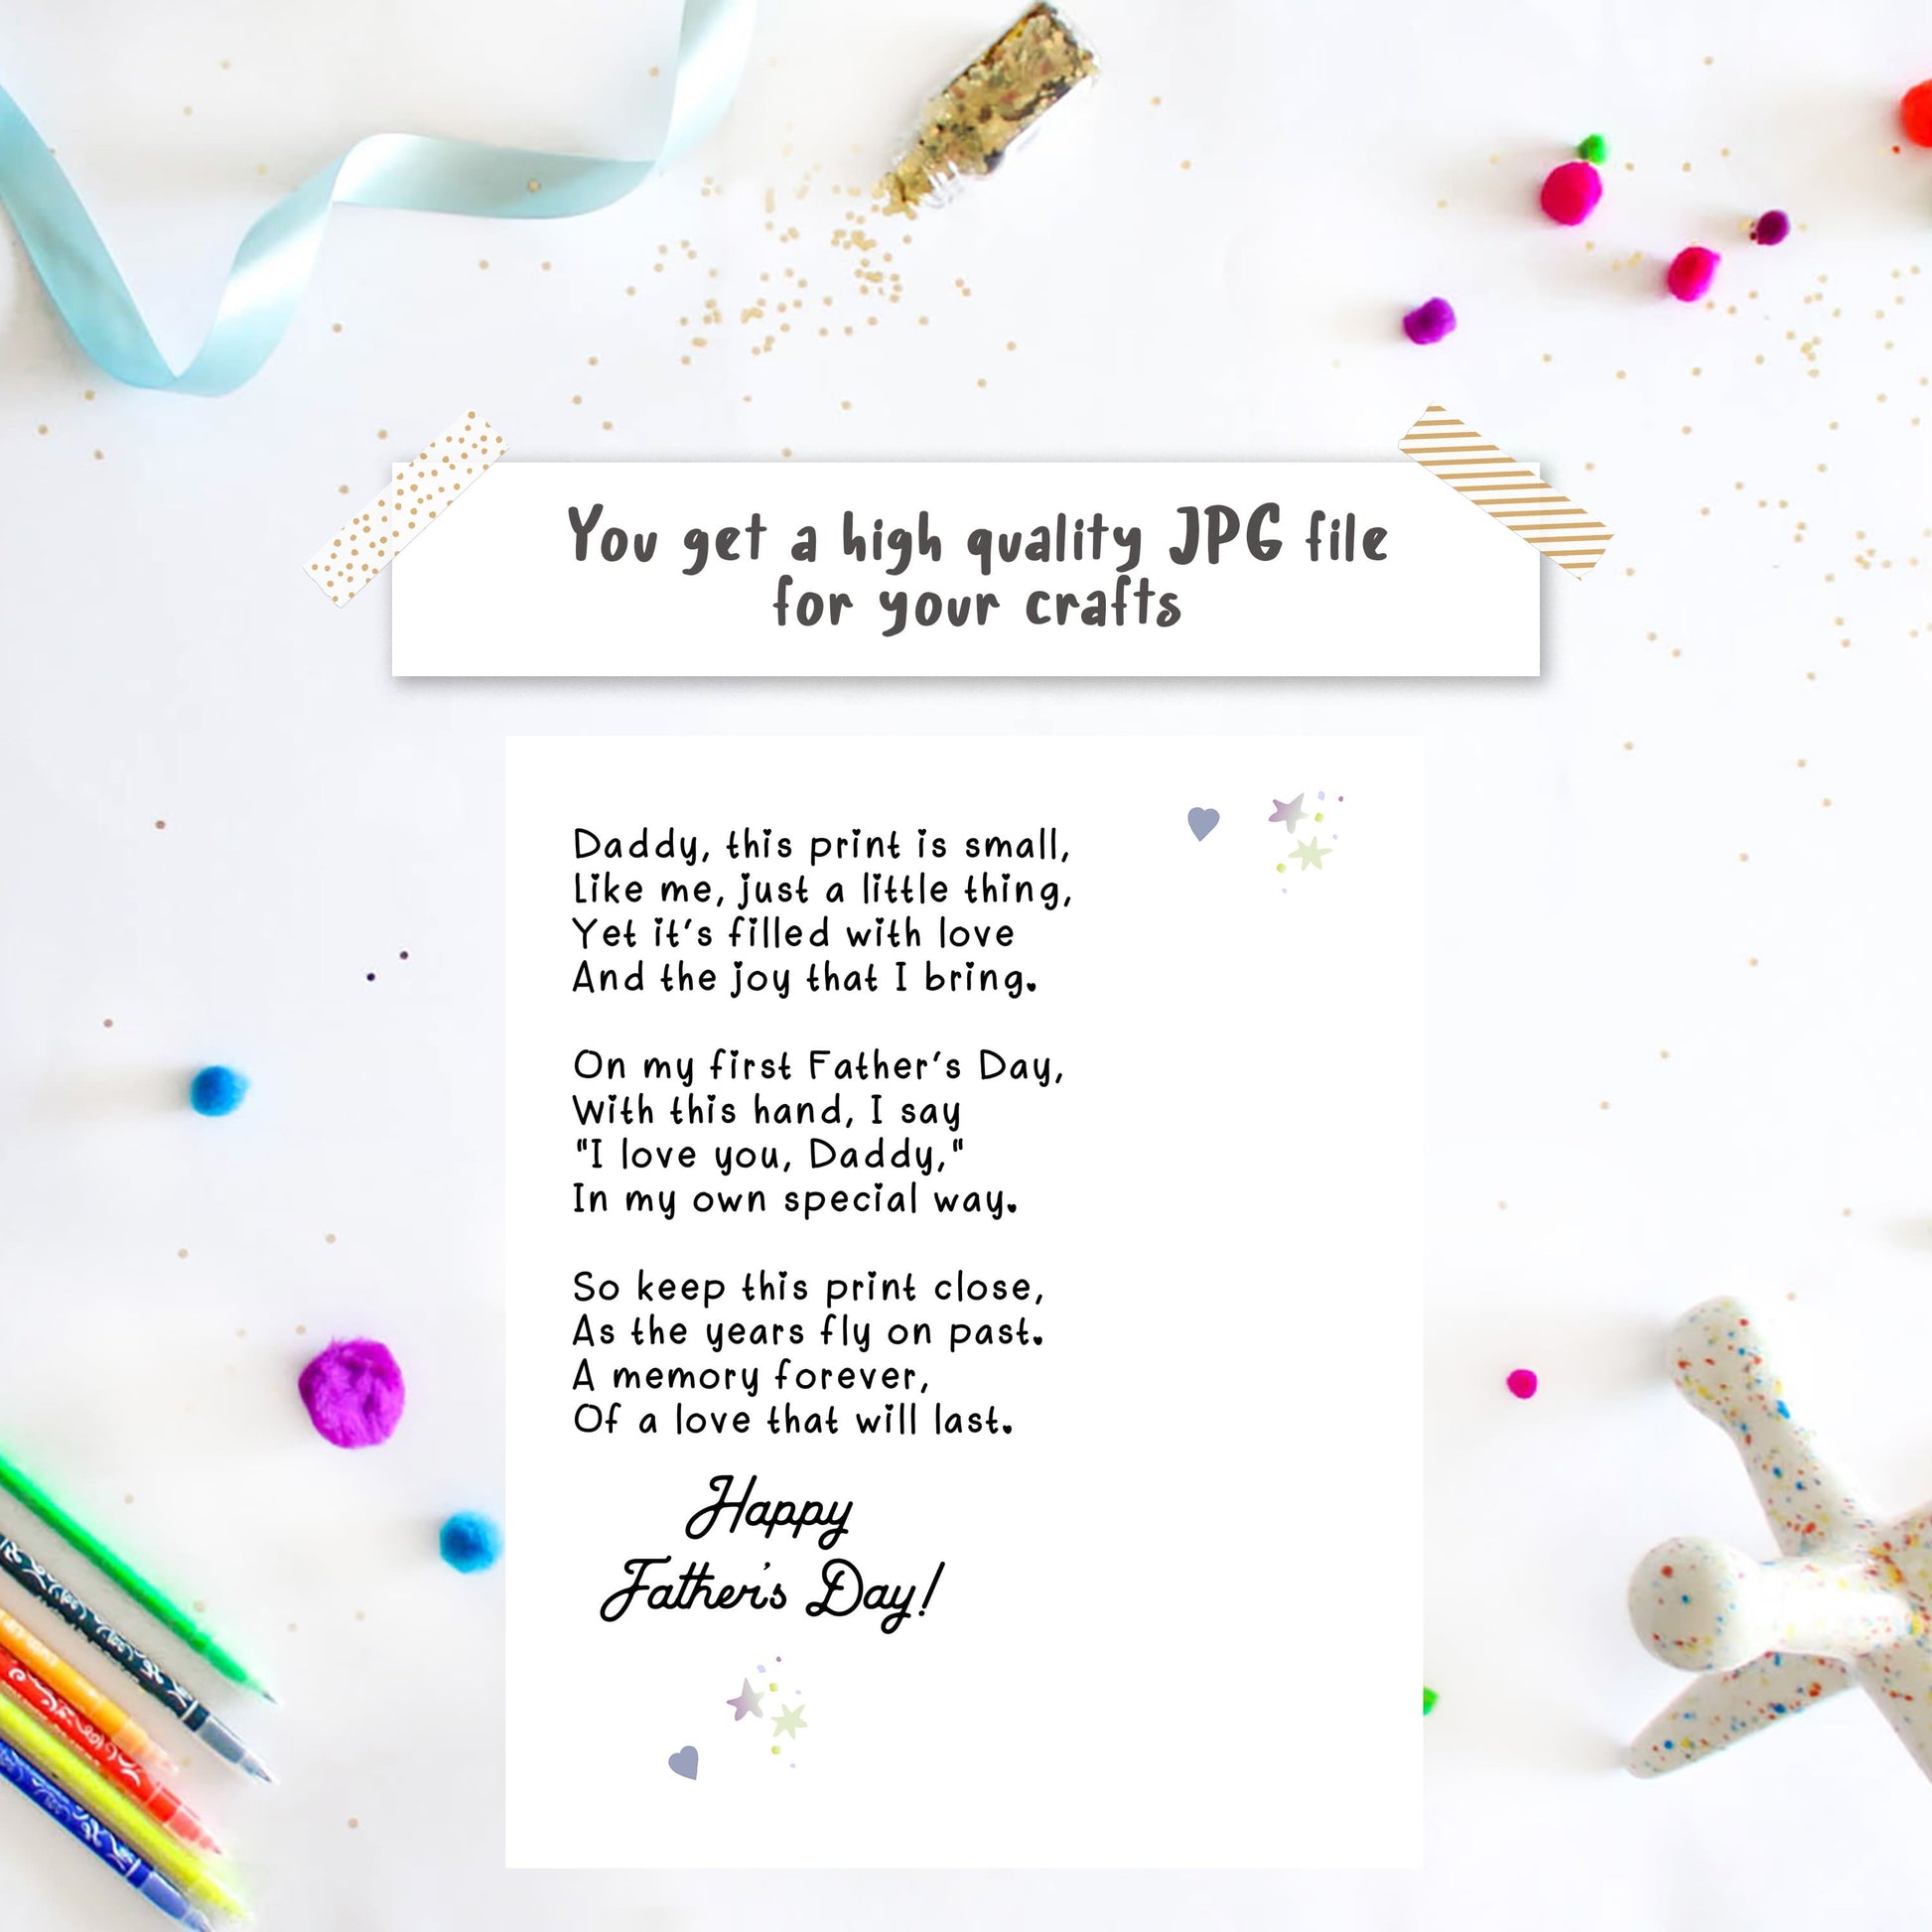 You get a high quality JPG file
for your crafts
Daddy, this print is small,
Like me, just a little thing,
Yet it's filled with love
And the joy that I bring.
On my first Father's Day,
With this hand, I say
"I love you, Daddy,"
In my own special way.
So keep this print close,
As the years fly on past.
A memory forever,
Of a love that will last.
Happy
Father's Day!